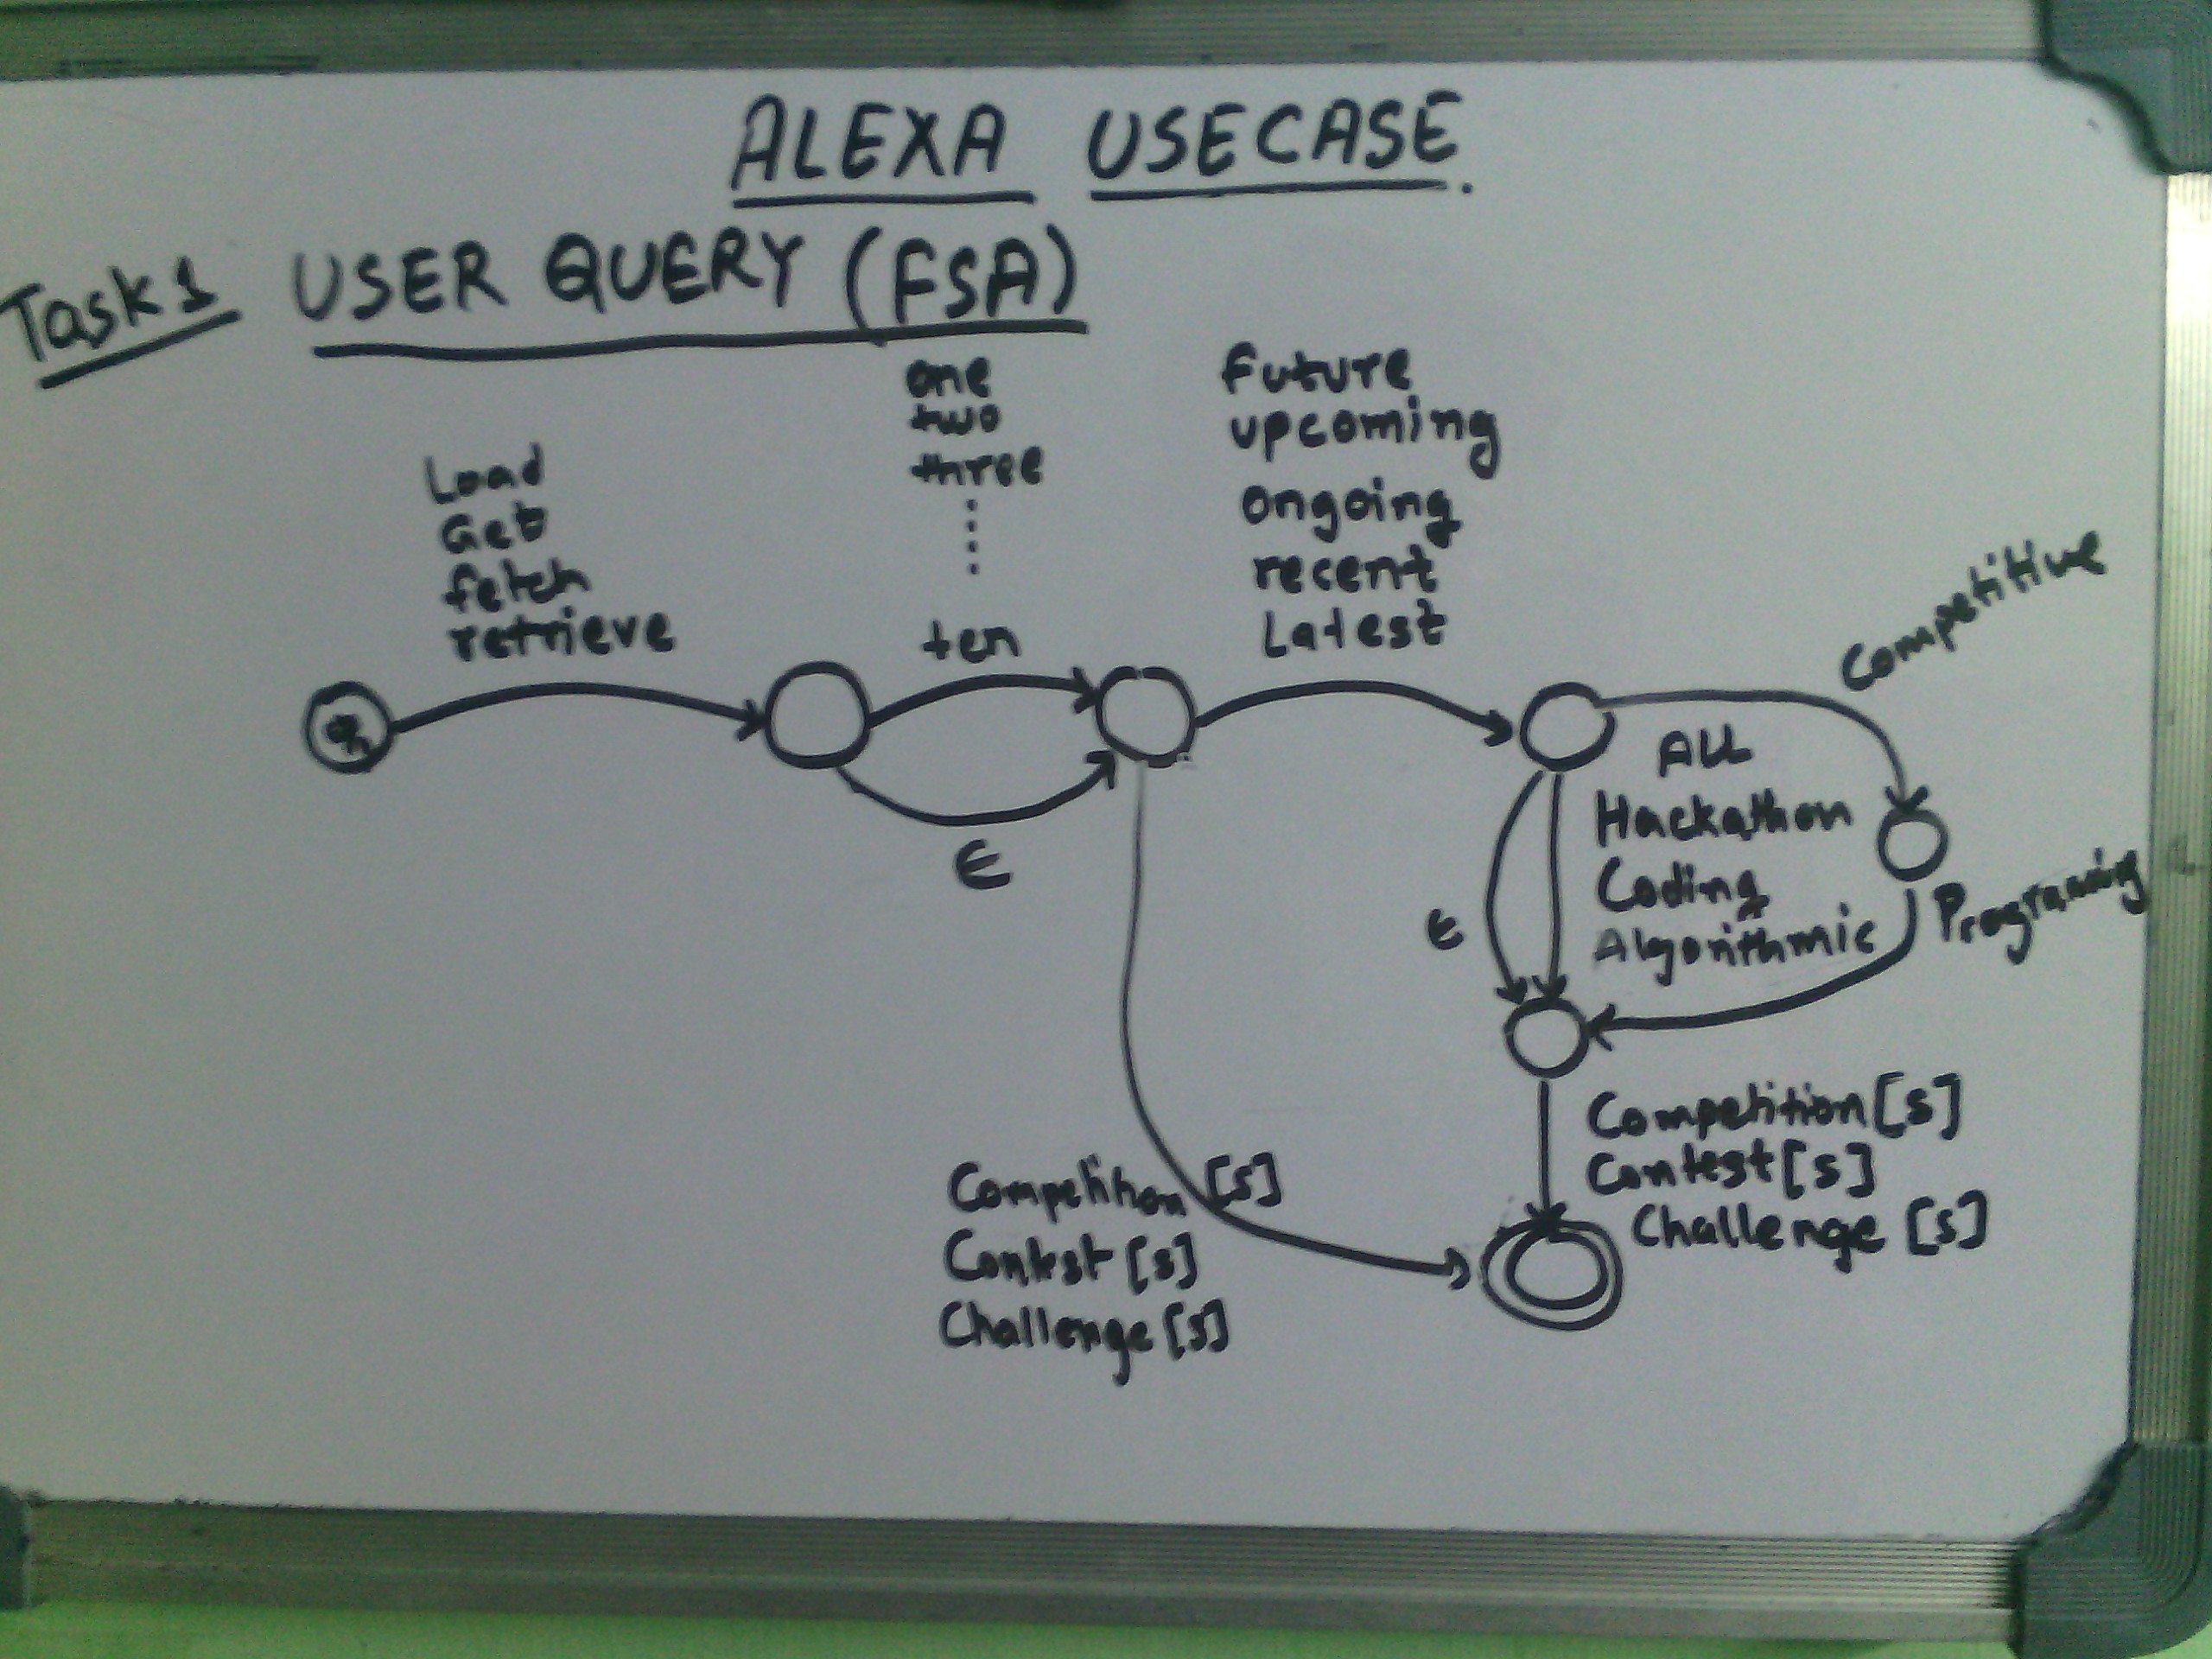 ALEXA USECASE.
Task 1 USER QUERY (FSA)
Load
Get
fetch
retrieve
one
two
three
ten
Future
upcoming
Ongoing
recent
Latest
Competitive
Programing
ALL
Hackathon
Coding
Algorithmic
ϵ
ϵ
Competition [s]
Contest [s]
Challenge [s]
Competition [s]
Contest [s]
Challenge [s]